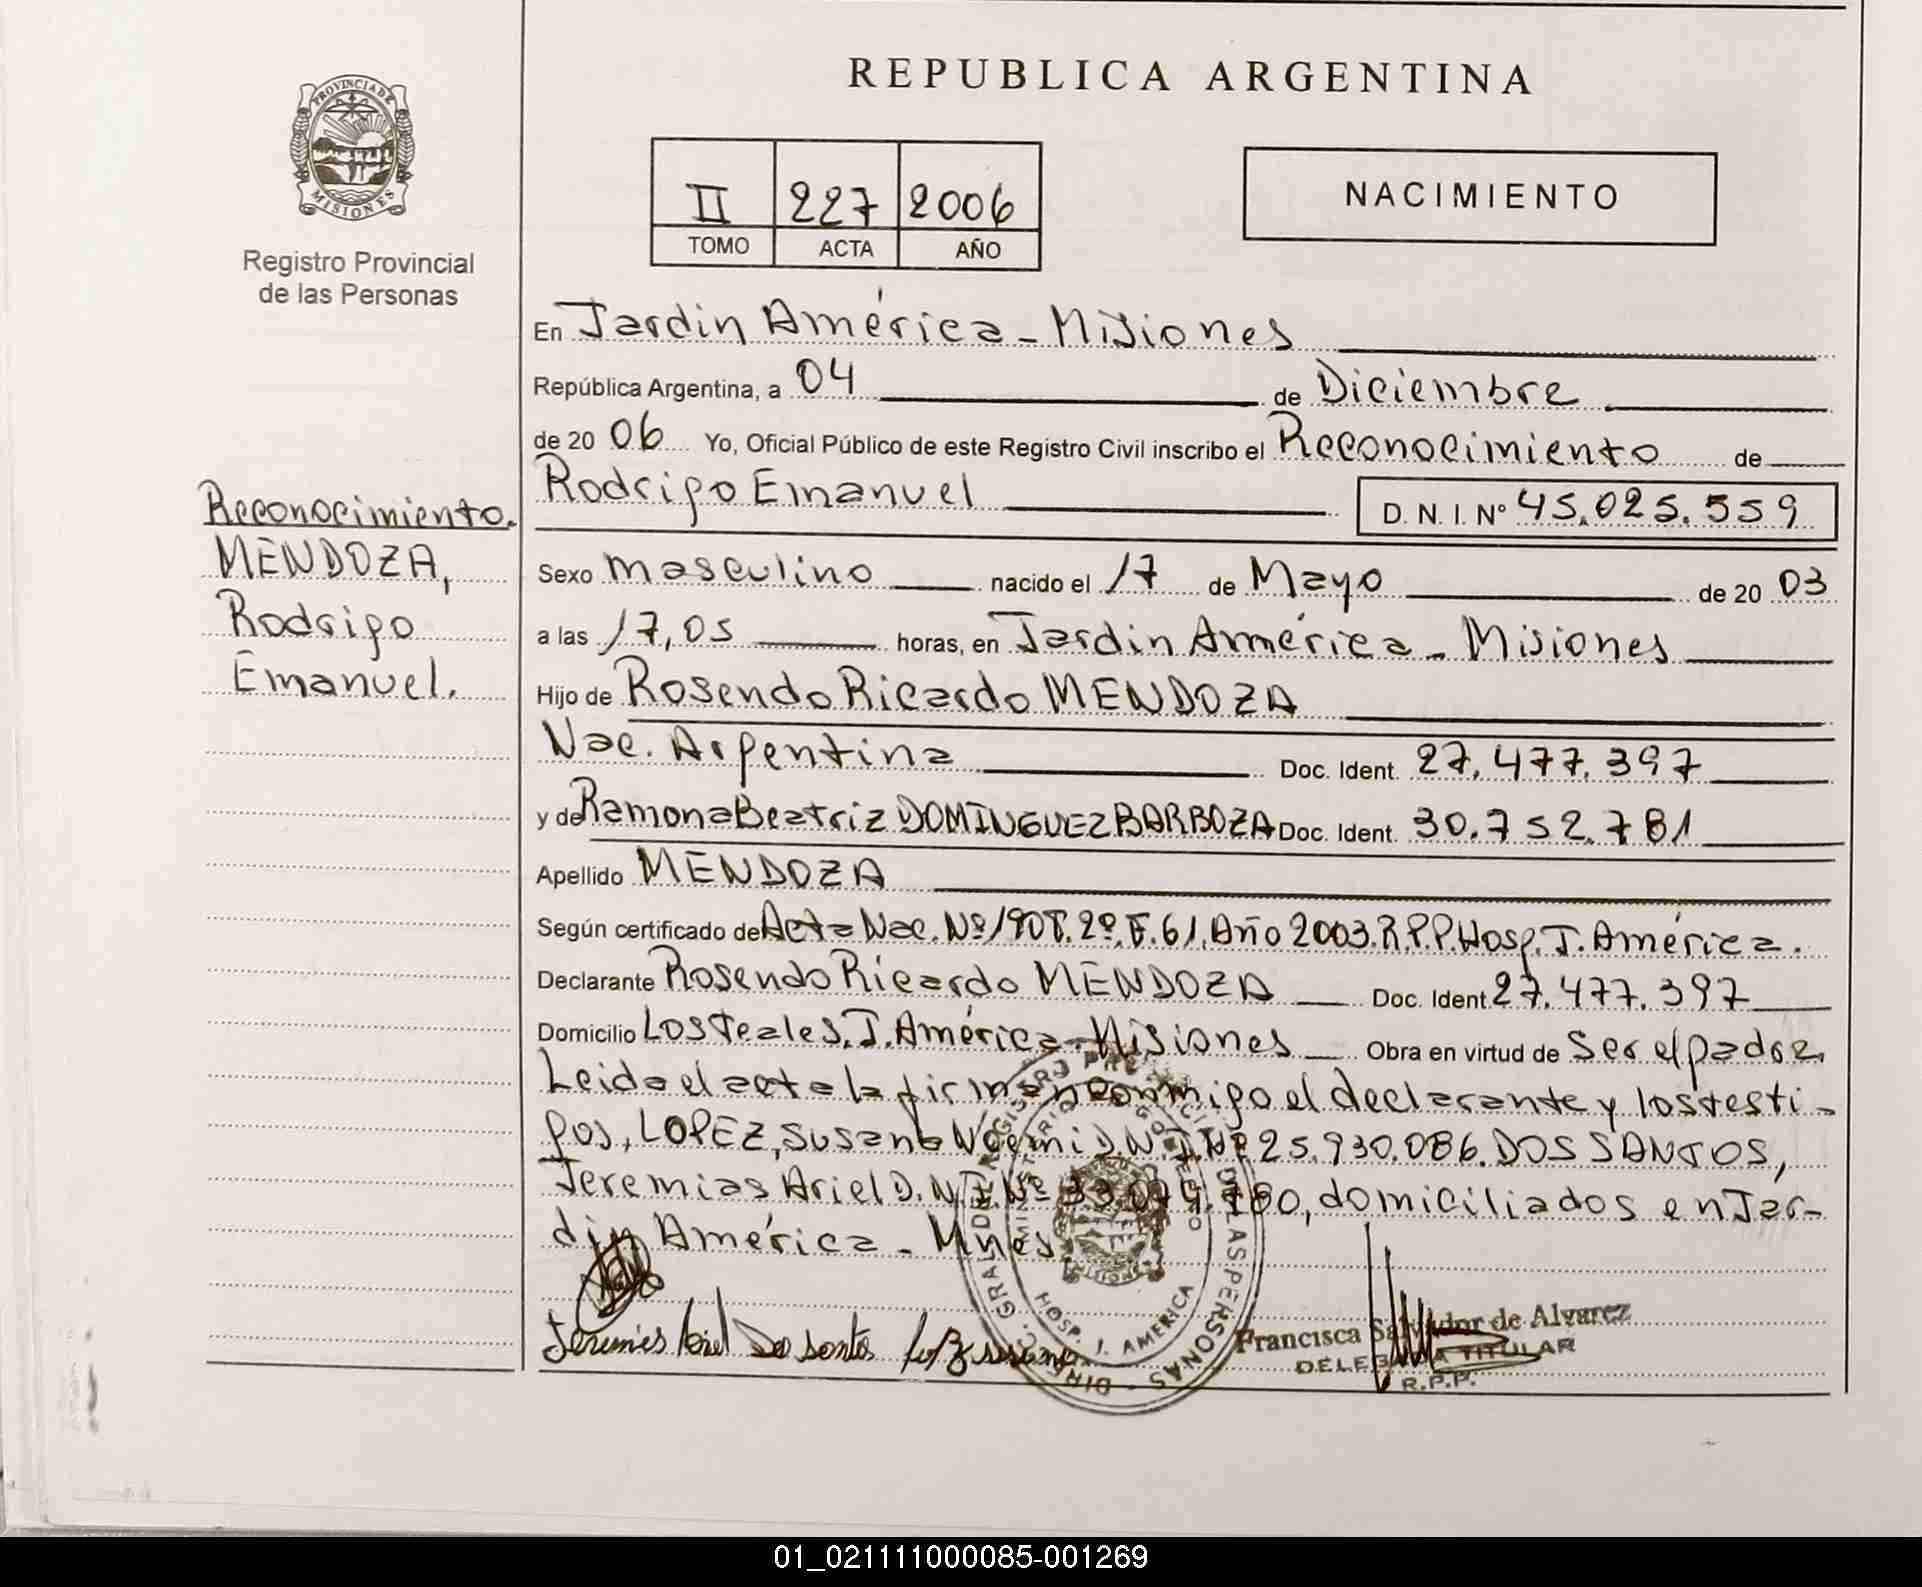 PROVINCIA DE
MISIONES
Registro Provincial
de las Personas
REPUBLICA ARGENTINA
II 227 2006
TOMO ACTA AÑO
NACIMIENTO
En Jardin América - Misiones
República Argentina, a 04 de Diciembre
de 20 06 Yo, Oficial Público de este Registro Civil inscribo el Reconocimiento de
Rodrigo Emanuel D. N. I. Nº 45.025.559
Reconocimiento.
MENDOZA,
Rodrigo
Emanuel.
Sexo masculino nacido el 17 de Mayo de 20 03
a las 17,05 horas, en Jardin América - Misiones
Hijo de Rosendo Ricardo MENDOZA
Nac. Argentina Doc. Ident. 27.477.397
y de Ramona Beatriz DOMINGUEZ BARBOZA Doc. Ident. 30.752.781
Apellido MENDOZA
Según certificado de Acta Nac. Nº 190 T. 2º. F. 61. Año 2003. R.P.P. Hosp. J. América.
Declarante Rosendo Ricardo MENDOZA Doc. Ident. 27.477.397
Domicilio Los Teales. J. América - Misiones Obra en virtud de Ser el padre.
Leida el acta la firman conmigo el declarante y los testi-
gos, LOPEZ, Susana Noemi D.N.I. Nº 25.930.086. DOS SANTOS,
Jeremias Ariel D.N.I. Nº domiciliados en Jar-
din América - Mnes
Jeremies Ariel Do santos
Francisca Salvador de Alvarez
DELEGADA TITULAR
R.P.P.
DIREC. GRAL. DEL REGISTRO PROVINCIAL DE LAS PERSONAS
MINISTERIO DE GOBIERNO
MISIONES
HOSP. J. AMERICA
01_021111000085-001269